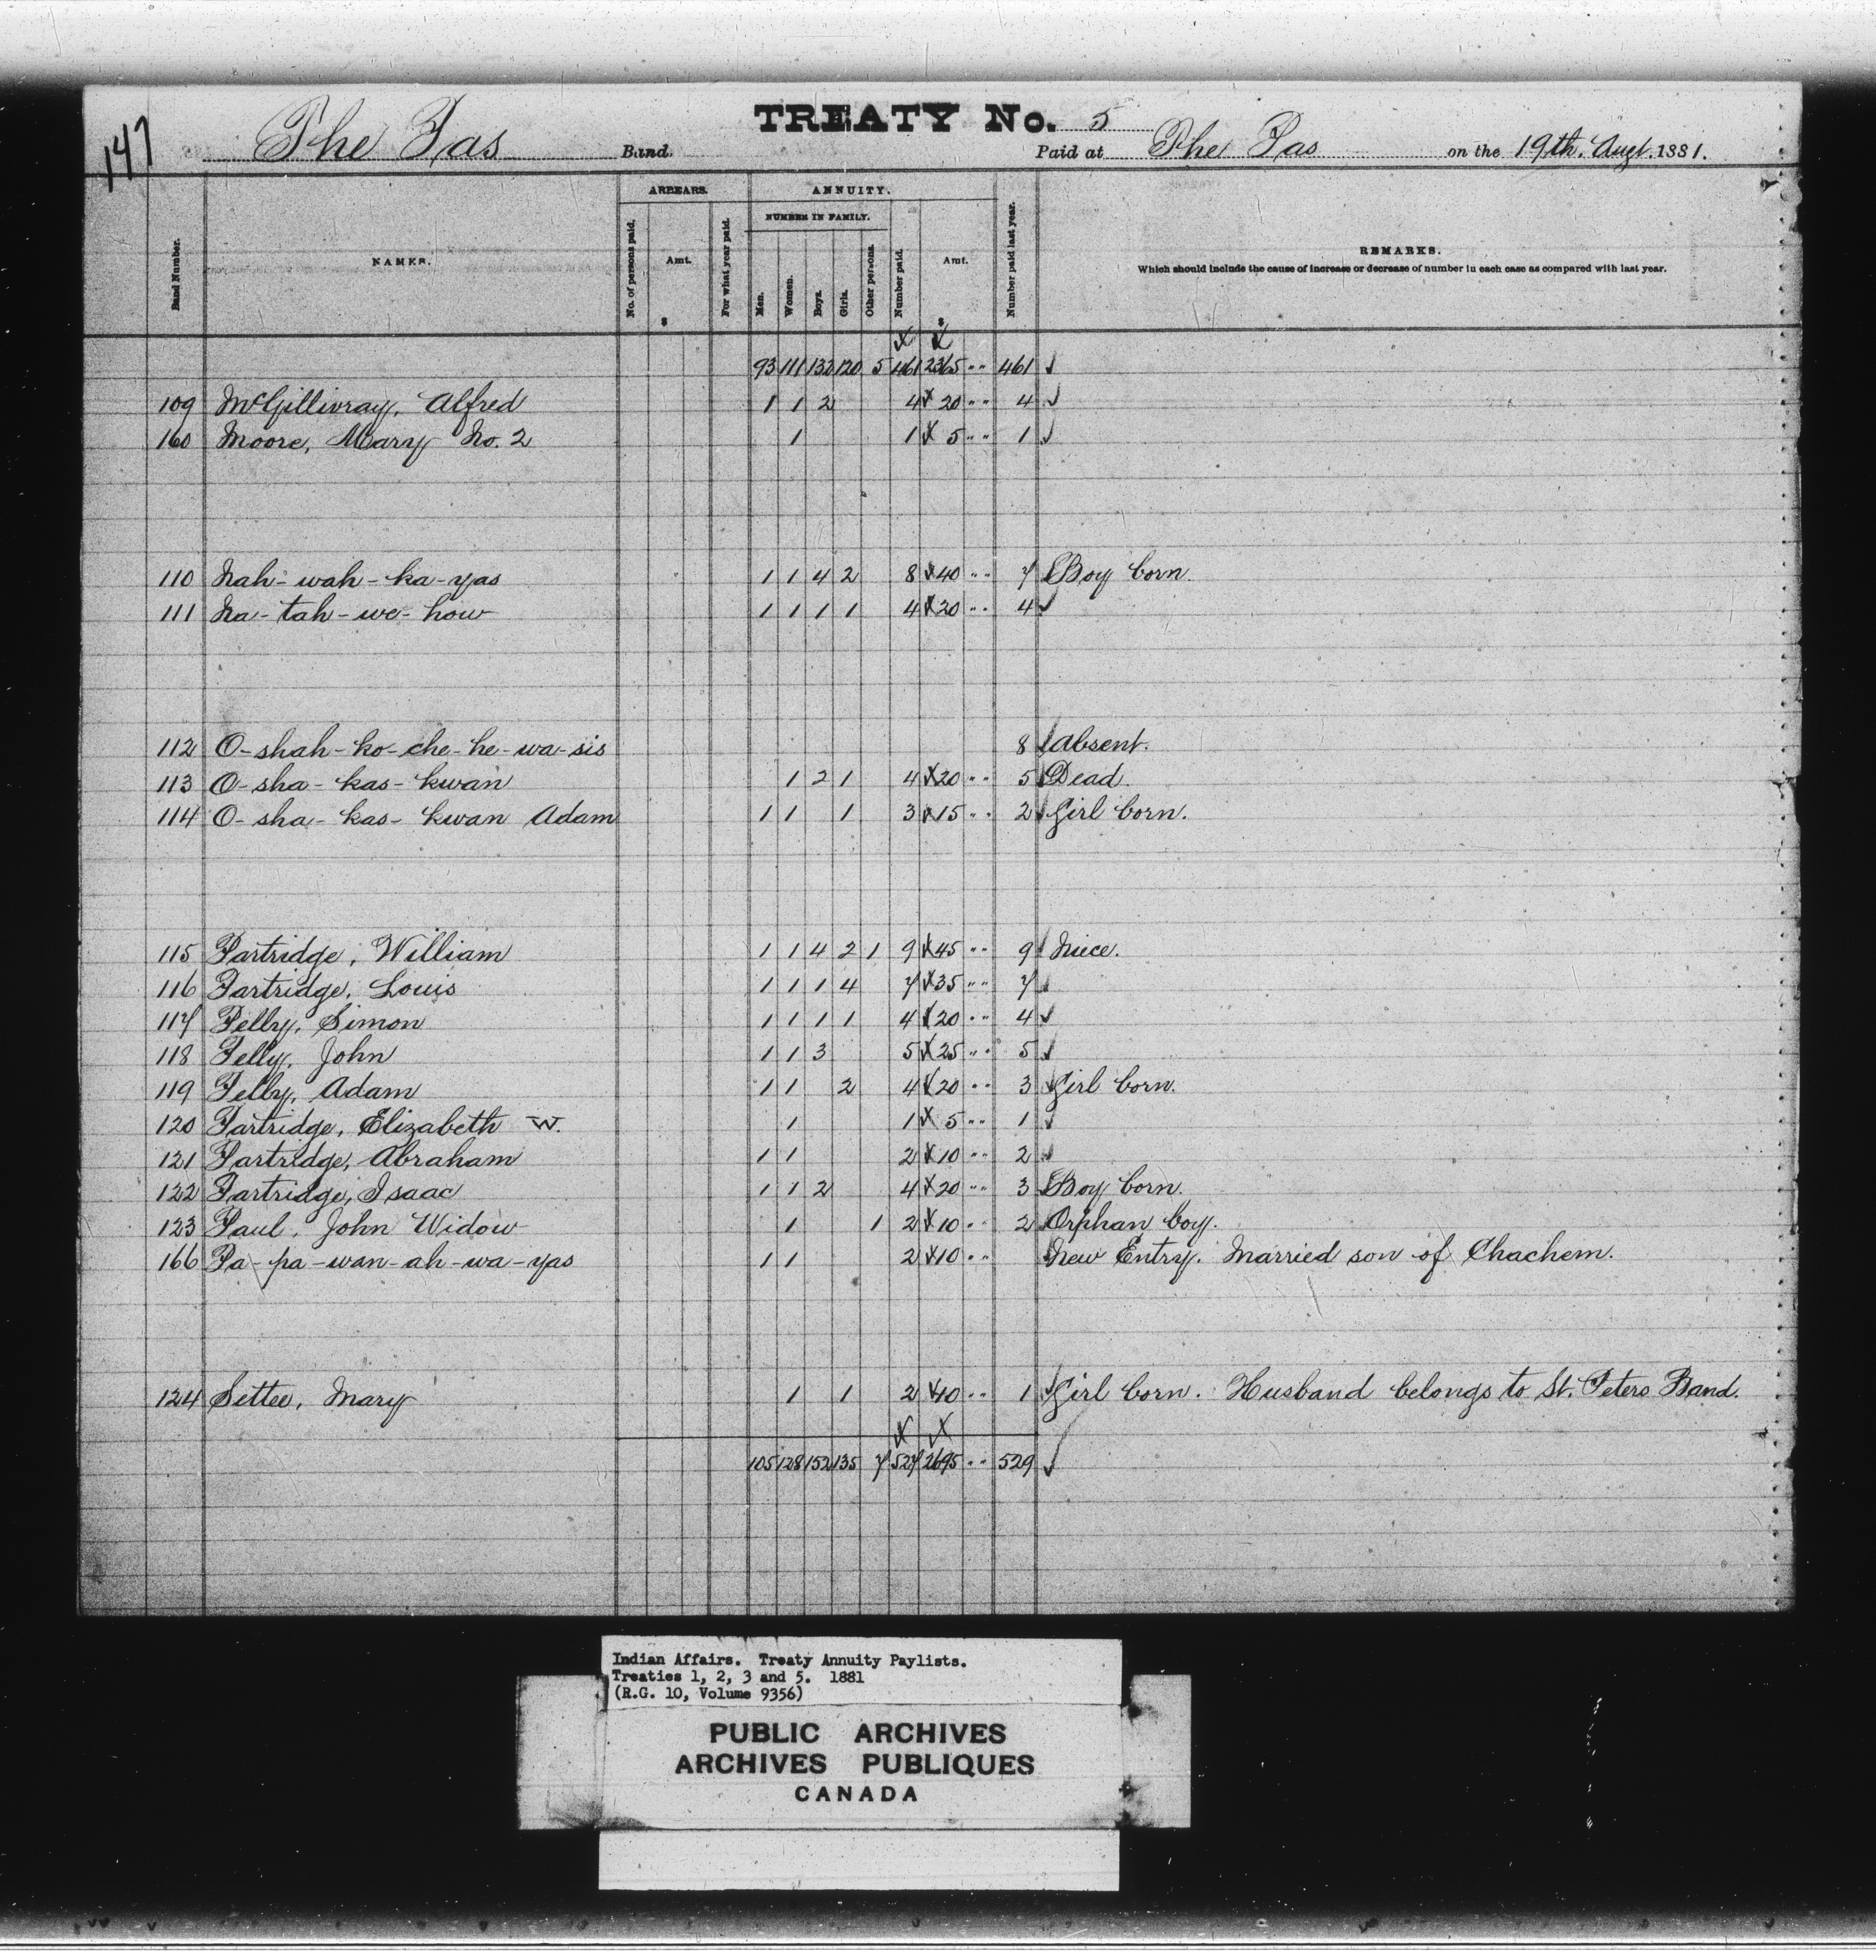 147
TREATY No. 5
The Pas Band. Paid at The Pas on the 19th. Augt. 1881.
ARREARS. ANNUITY.
NUMBER IN FAMILY.
Band Number. NAMES. No. of persons paid. Amt. $ For what year paid. Men. Women. Boys. Girls. Other persons. Number paid. Amt. $ Number paid last year. REMARKS.
Which should include the cause of increase or decrease of number in each case as compared with last year.
93 111 132 120 5 461 2365 " 461
109 McGillivray, Alfred 1 1 2 4 20 " 4
160 Moore, Mary No. 2 1 1 5 " 1
110 Nah-wah-ka-yas 1 1 4 2 8 40 " 7 Boy born.
111 Na-tah-we-how 1 1 1 1 4 20 " 4
112 O-shah-ko-che-he-wa-sis 8 Absent.
113 O-sha-kas-kwan 1 2 1 4 20 " 5 Dead.
114 O-sha-kas-kwan Adam 1 1 1 3 15 " 2 Girl born.
115 Partridge, William 1 1 4 2 1 9 45 " 9 Niece.
116 Partridge, Louis 1 1 1 4 7 35 " 7
117 Pelly, Simon 1 1 1 1 4 20 " 4
118 Pelly, John 1 1 3 5 25 " 5
119 Pelly, Adam 1 1 2 4 20 " 3 Girl born.
120 Partridge, Elizabeth W. 1 1 5 " 1
121 Partridge, Abraham 1 1 2 10 " 2
122 Partridge, Isaac 1 1 2 4 20 " 3 Boy born.
123 Paul, John Widow 1 1 2 10 " 2 Orphan boy.
166 Pa-pa-wan-ah-wa-yas 1 1 2 10 " New Entry. Married son of Chachem.
124 Settee, Mary 1 1 2 10 " 1 Girl born. Husband belongs to St. Peters Band.
105 128 152 135 7 527 2695 " 529
Indian Affairs. Treaty Annuity Paylists.
Treaties 1, 2, 3 and 5. 1881
(R.G. 10, Volume 9356)
PUBLIC ARCHIVES
ARCHIVES PUBLIQUES
CANADA